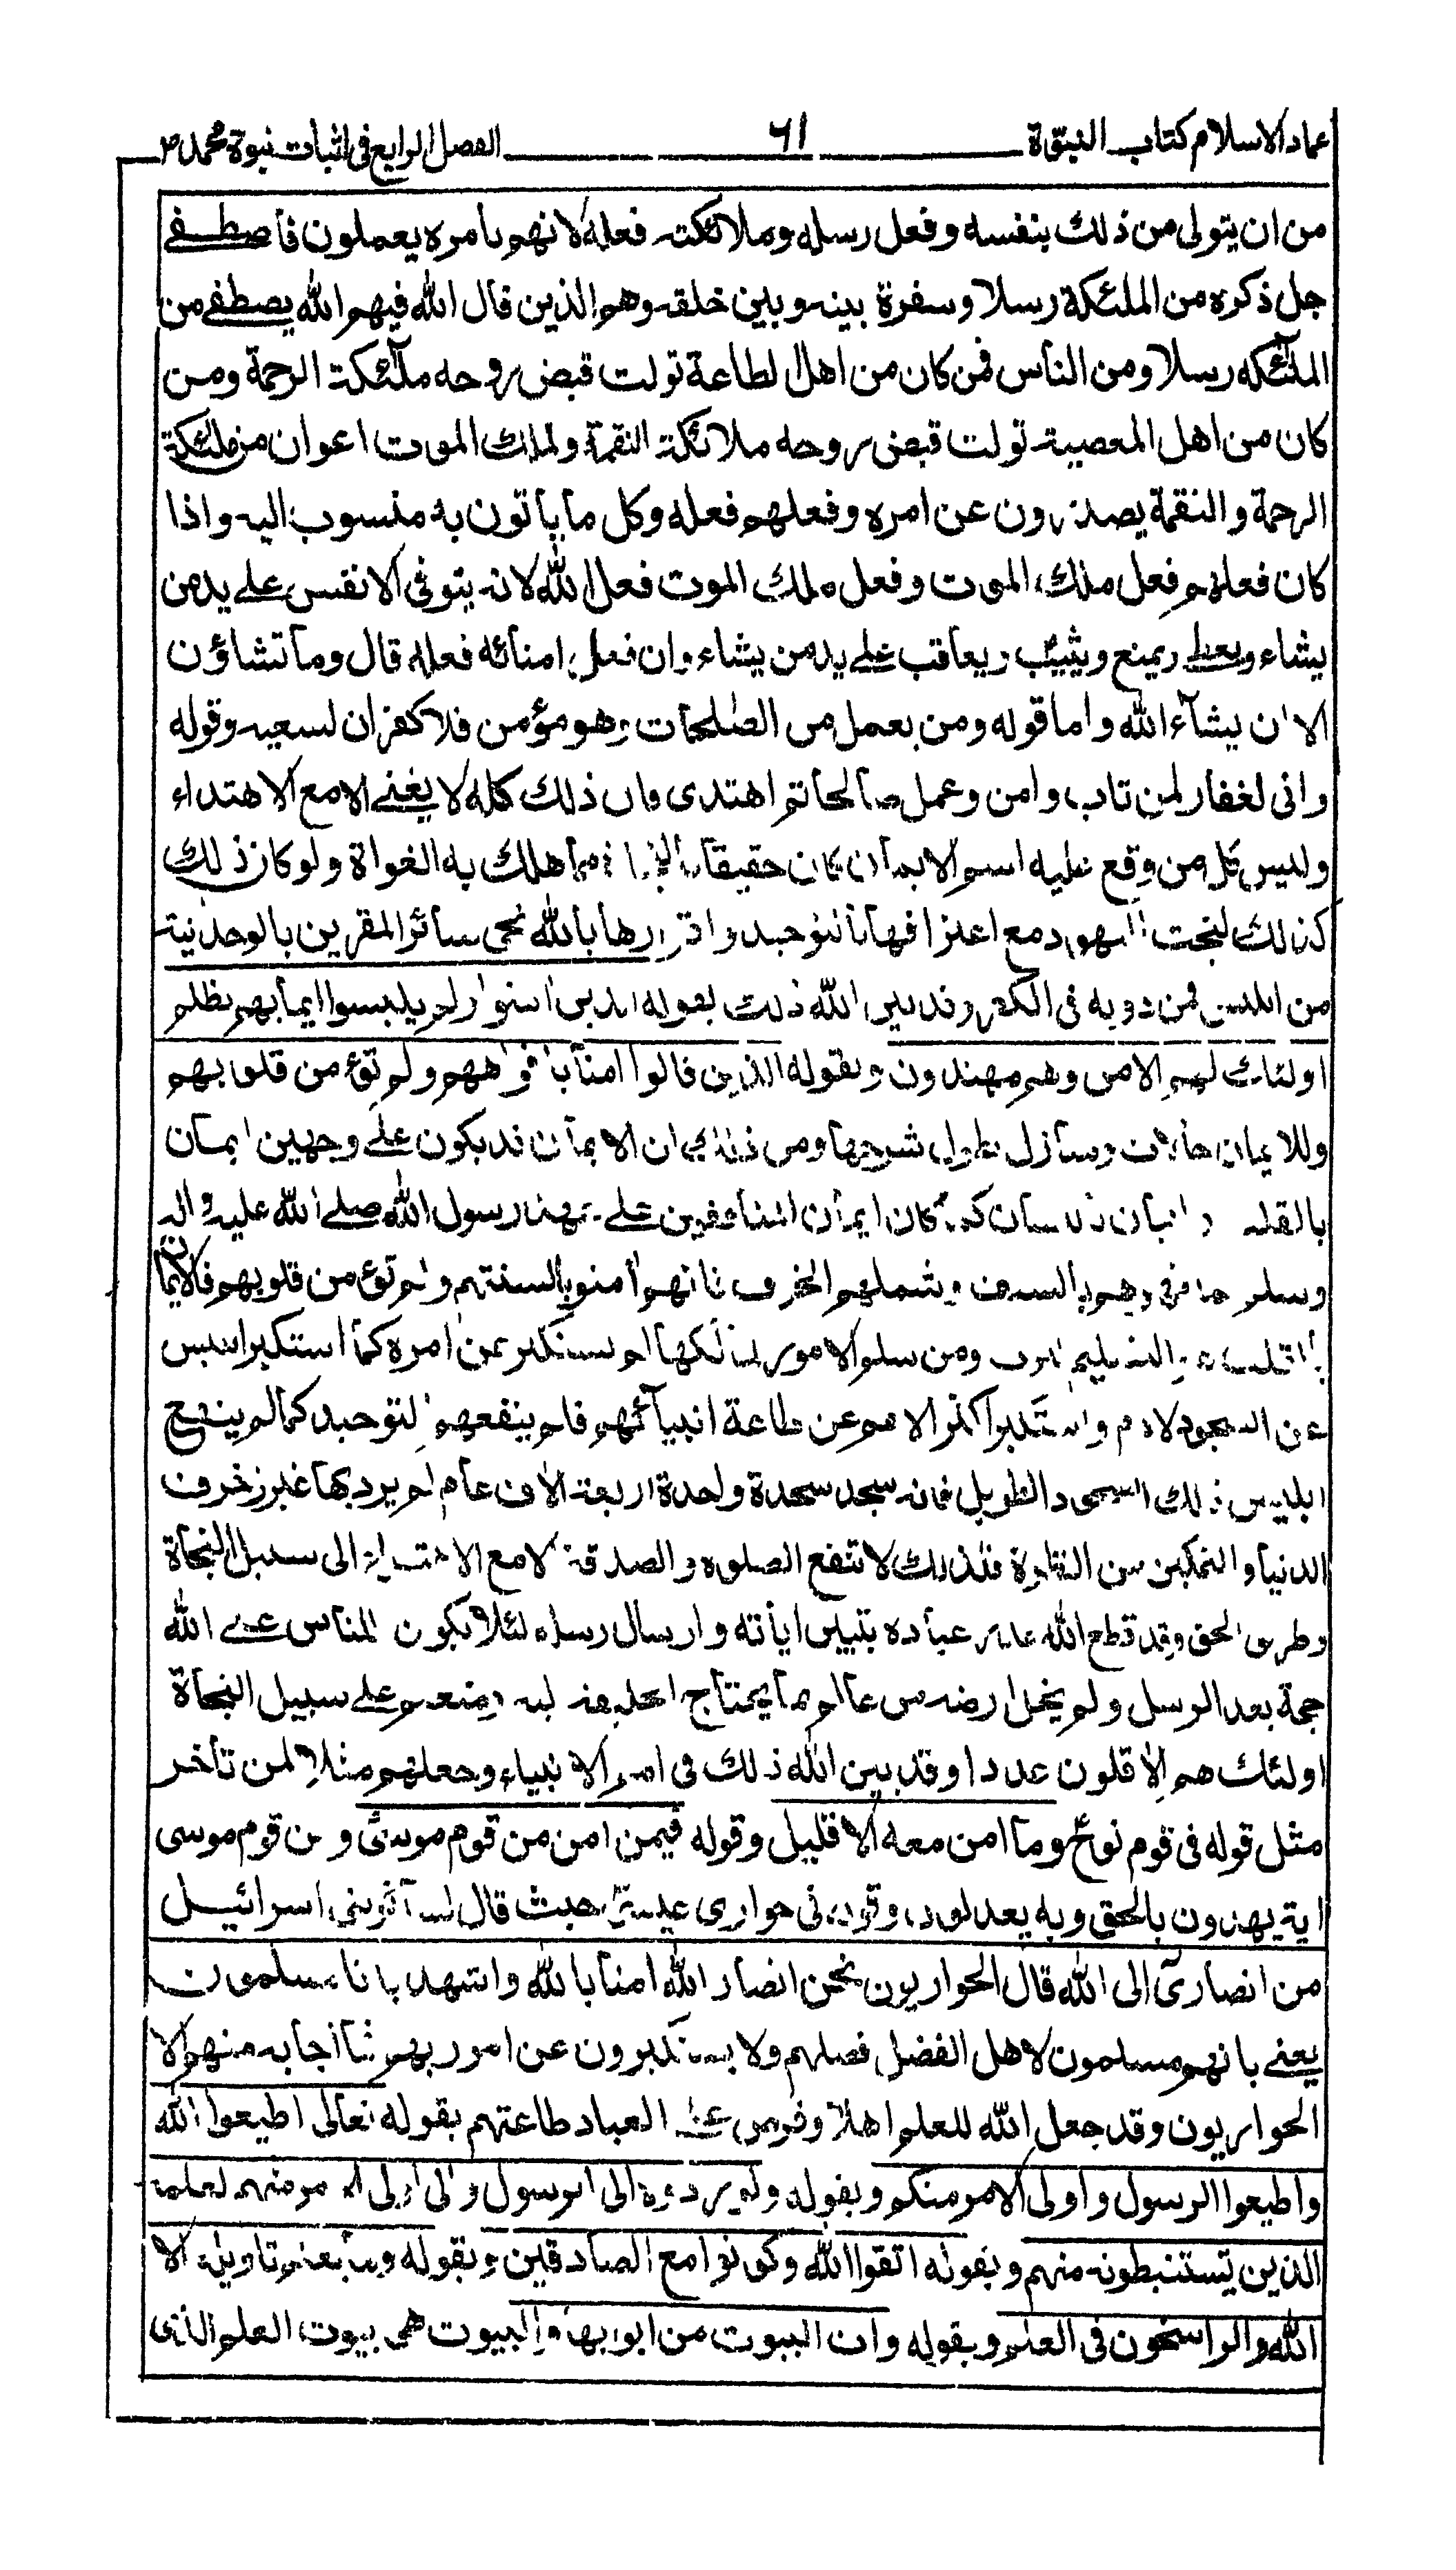 عماد الاسلام كتاب النبوة ٦١ الفصل الرابع فى اثبات نبوة محمد ص
من ان يتولى من ذلك بنفسه وفعل رسله وملائكته فعله لانهم بامره يعملون فاصطفى
جل ذكره من الملئكة رسلا وسفرة بينه وبين خلقه وهم الذين قال الله فيهم الله يصطفى من
الملئكه رسلا ومن الناس فمن كان من اهل الطاعة تولت قبض روحه ملئكة الرحمة ومن
كان من اهل المعصية تولت قبض روحه ملائكة النقمة ولملك الموت اعوان من ملئكة
الرحمة والنقمة يصدرون عن امره وفعلهم فعله وكل ما يأتون به منسوب اليه واذا
كان فعلهم فعل ملك الموت وفعل ملك الموت فعل الله لانه يتوفى الانفس على يد من
يشاء ويعطى ويمنع ويثيب ويعاقب على يد من يشاء وان فعل امنائه فعله قال وما تشاؤن
الا ان يشآء الله واما قوله ومن يعمل من الصلحات وهو مؤمن فلا كفران لسعيه وقوله
وانى لغفار لمن تاب وامن وعمل صالحا ثم اهتدى وان ذلك كله لا يغنى الا مع الاهتداء
وليس كل من وقع عليه اسم الايمان كان حقيقا بالنجاة مما هلك به الغواة ولو كان ذلك
كذلك لنجت اليهود مع اعترافها بالتوحيد واقرارها بالله نجى سائر المقرين بالوحدنية
من ابليس فمن دونه فى الكفر وقد بين الله ذلك بقوله الذين امنوا ولم يلبسوا ايمانهم بظلم
اولئك لهم الامن وهم مهتدون وبقوله الذين قالوا امنا بافواههم ولم تؤمن قلوبهم
وللايمان حالات ومنازل يطول شرحها ومن ذلك ان الايمان قد يكون على وجهين ايمان
بالقلب وايمان باللسان كما كان ايمان المنافقين على عهد رسول الله صلى الله عليه واله
وسلم لما قهرهم بالسيف وشملهم الخوف فانهم امنوا بالسنتهم ولم تؤمن قلوبهم فالايمان
بالقلب هو التسليم للرب ومن سلم الامور لمالكها لم يستكبر عن امره كما استكبر ابليس
عن السجود لادم واستكبر اكثر الامم عن طاعة انبيآئهم فلم ينفعهم التوحيد كما لم ينفع
ابليس ذلك السجود الطويل فانه سجد سجدة واحدة اربعة الاف عام لم يرد بها غير زخرف
الدنيا والتمكين من النظرة فلذلك لا تنفع الصلوه والصدقة الا مع الاهتداء الى سبيل النجاة
وطريق الحق وقد قطع الله عذر عباده بتبيين اياته وارسال رسله لئلا يكون للناس على الله
حجة بعد الرسل ولم يخل ارضه من عالم بما يحتاج الخليقة اليه ومتعلم على سبيل النجاة
اولئك هم الاقلون عددا وقد بين الله ذلك فى امم الانبياء وجعلهم مثلا لمن تأخر
مثل قوله فى قوم نوح وما امن معه الا قليل وقوله فيمن امن من قوم موسى ومن قوم موسى
امة يهدون بالحق وبه يعدلون وقوله فى حوارى عيسى حيث قال لسائر بنى اسرائيل
من انصارى الى الله قال الحواريون نحن انصار الله امنا بالله واشهد بانا مسلمون
يعنى بانهم مسلمون لاهل الفضل فضلهم ولا يستكبرون عن امر ربهم فما اجابه منهم الا
الحواريون وقد جعل الله للعلم اهلا وفرض على العباد طاعتهم بقوله تعالى اطيعوا الله
واطيعوا الرسول واولى الامر منكم وبقوله ولو ردوه الى الرسول والى اولى الامر منهم لعلمه
الذين يستنبطونه منهم وبقوله اتقوا الله وكونوا مع الصادقين وبقوله وما يعلم تاويله الا
الله والراسخون فى العلم وبقوله وات البيوت من ابوابها والبيوت هى بيوت العلم الذى